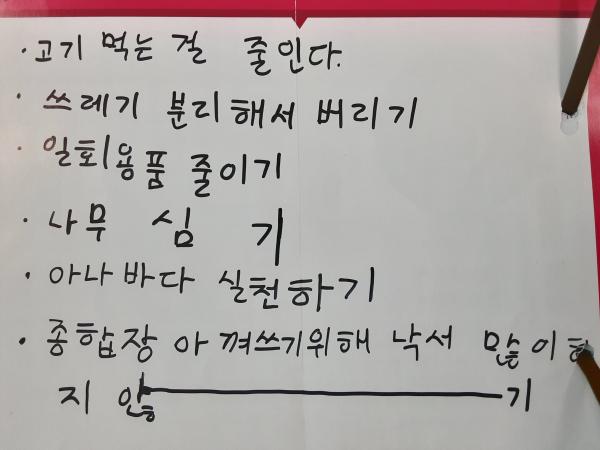 · 고기 먹는 걸 줄인다.
· 쓰레기 분리해서 버리기
· 일회용품 줄이기
· 나무 심기
· 아나바다 실천하기
· 종합장 아껴쓰기위해 낙서 많이하
지 않기